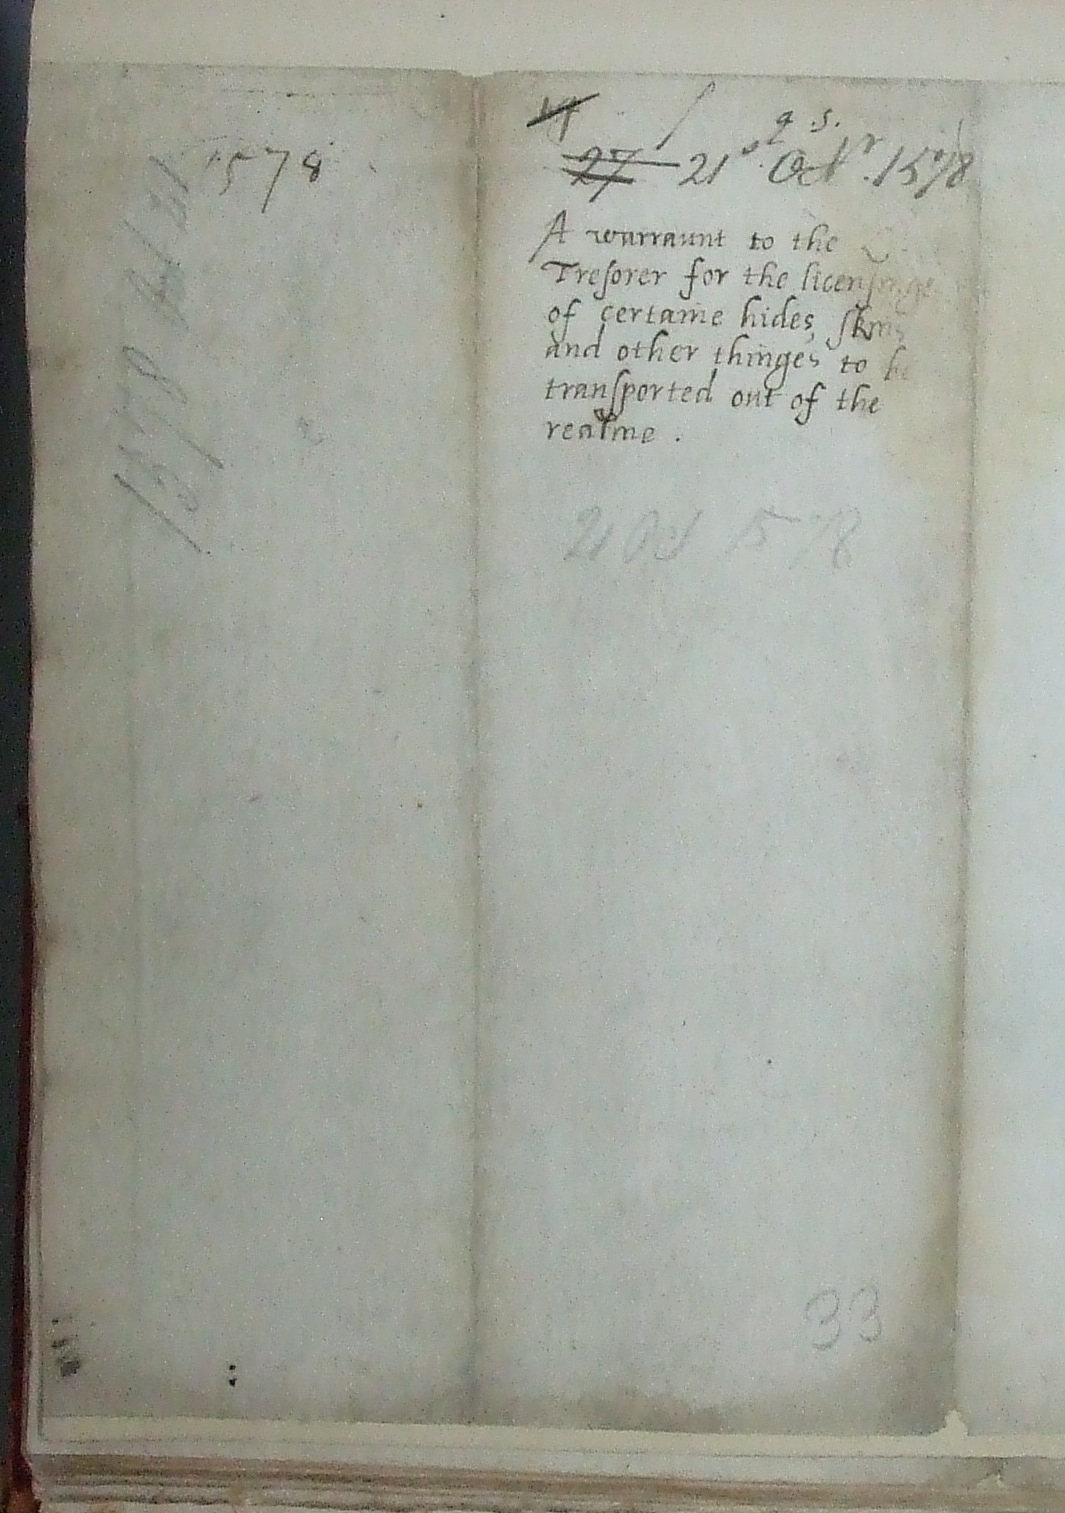 1578
1578 Oct 21
q. s.
27 21st Octr. 1578
A warraunt to the
Tresorer for the licensinge
of certaine hides, skins
and other thinges to be
transported out of the
realme.
21 Oct 1578
33